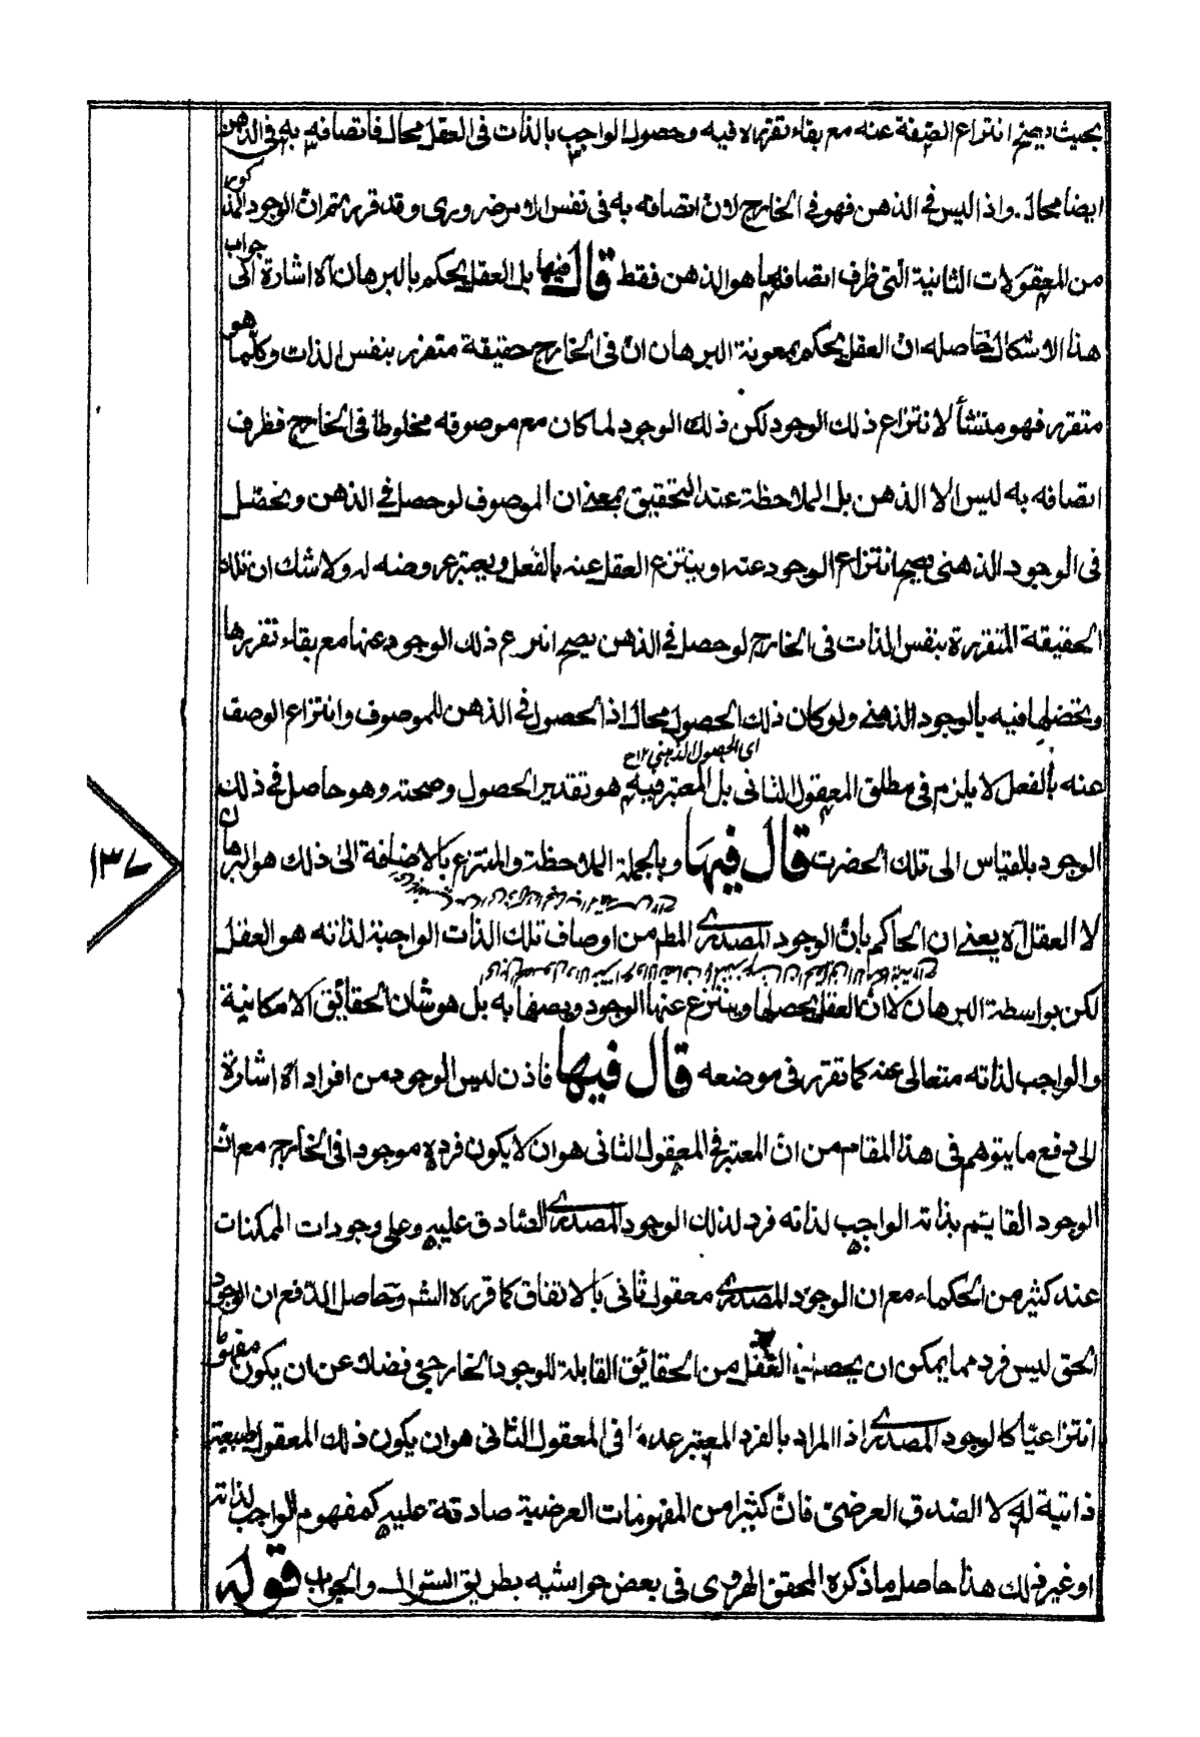 بحيث يصح انتزاع الصفة عنه مع بقاء تقرره فيه وحصول الواجب بالذات فى العقل محال فاتصافه به فى الذهن
ايضا محال. واذ ليس فى الذهن فهو فى الخارج لان اتصافه به فى نفس الامر ضرورى وقد قرر ثم ان الوجود المذكور
من المعقولات الثانية التى ظرف اتصافها هو الذهن فقط قال فيها بل العقل يحكم بالبرهان آه اشارة الى جواب
هذا الاشكال حاصله ان العقل يحكم بمعونة البرهان ان فى الخارج حقيقة متقرر بنفس الذات وكلما هو
متقرر فهو منشأ لانتزاع ذلك الوجود لكن ذلك الوجود لما كان مع موصوفه مخلوطا فى الخارج فظرف
اتصافه به ليس الا الذهن بل الملاحظة عند التحقيق بمعنى ان الموصوف لو حصل فى الذهن وتحصل
فى الوجود الذهنى صح انتزاع الوجود عنه او ينتزع العقل عنه بالفعل ويعتبر عروضه له ولا شك ان تلك
الحقيقة المتقررة بنفس الذات فى الخارج لو حصل فى الذهن يصح انتزاع ذلك الوجود عنها مع بقاء تقررها
وتحصلها فيه بالوجود الذهنى ولو كان ذلك الحصول محالا اذ الحصول فى الذهن للموصوف وانتزاع الوصف
اى الحصول الذهنى ١٢
عنه بالفعل لا يلزم فى مطلق المعقول الثانى بل المعتبر فيه هو تقدير الحصول وصحته وهو حاصل فى ذلك
الوجود بالقياس الى تلك الحضرت قال فيها وبالجملة الملاحظة والمنتزع بالاضافة الى ذلك هو البرهان
لا العقل آه يعنى ان الحاكم بان الوجود المصدرى المطم من اوصاف تلك الذات الواجبة لذاته هو العقل
لكن بواسطة البرهان لا ان العقل يحصلها وينتزع عنها الوجود ويصفها به بل هو شان الحقائق الامكانية
والواجب لذاته متعالى عنه كما تقرر فى موضعه قال فيها فاذن ليس الوجود من افراد آه اشارة
الى دفع ما يتوهم فى هذا المقام من ان المعتبر فى المعقول الثانى هو ان لا يكون فرده موجودا فى الخارج مع ان
الوجود القايم بذاته الواجب لذاته فرد لذلك الوجود المصدرى الصادق عليه وعلى وجودات الممكنات
عند كثير من الحكماء مع ان الوجود المصدرى معقول ثانى بالاتفاق كما قرره الشم وحاصل الدفع ان الوجود
الحق ليس فرد مما يمكن ان يحصله العقل من الحقائق القابلة للوجود الخارجى فضلا عن ان يكون مفهوما
انتزاعيا كالوجود المصدرى اذ المراد بالفرد المعتبر عدمه فى المعقول الثانى هو ان يكون ذلك المعقول طبيعة
ذاتية له لا الصدق العرضى فان كثيرا من المفهومات العرضية صادقة عليه كمفهوم الواجب لذاته
او غير ذلك هذا حاصل ما ذكره المحقق الهروى فى بعض حواشيه بطريق السوال والجواب قوله
١٣٧